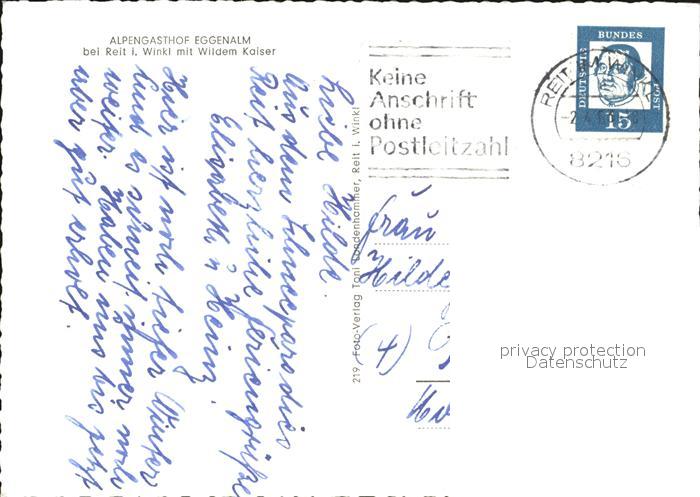 ALPENGASTHOF EGGENALM
bei Reit i. Winkl mit Wildem Kaiser
Liebe Hilde.
Aus dem Schneeparadies
Reit herzliche Feriengrüße
Elisabeth, Heinz.
Hier ist noch tiefer Winter
und es schneit immer noch
weiter. Haben uns bis jetzt
aber gut erholt.
219 Foto-Verlag Toni Sondenhammer, Reit i. Winkl
Keine
Anschrift
ohne
Postleitzahl
REIT IM WINKL
8216
DEUTSCHE
BUNDES
POST
15
Frau
Hilde
(4)
privacy protection
Datenschutz